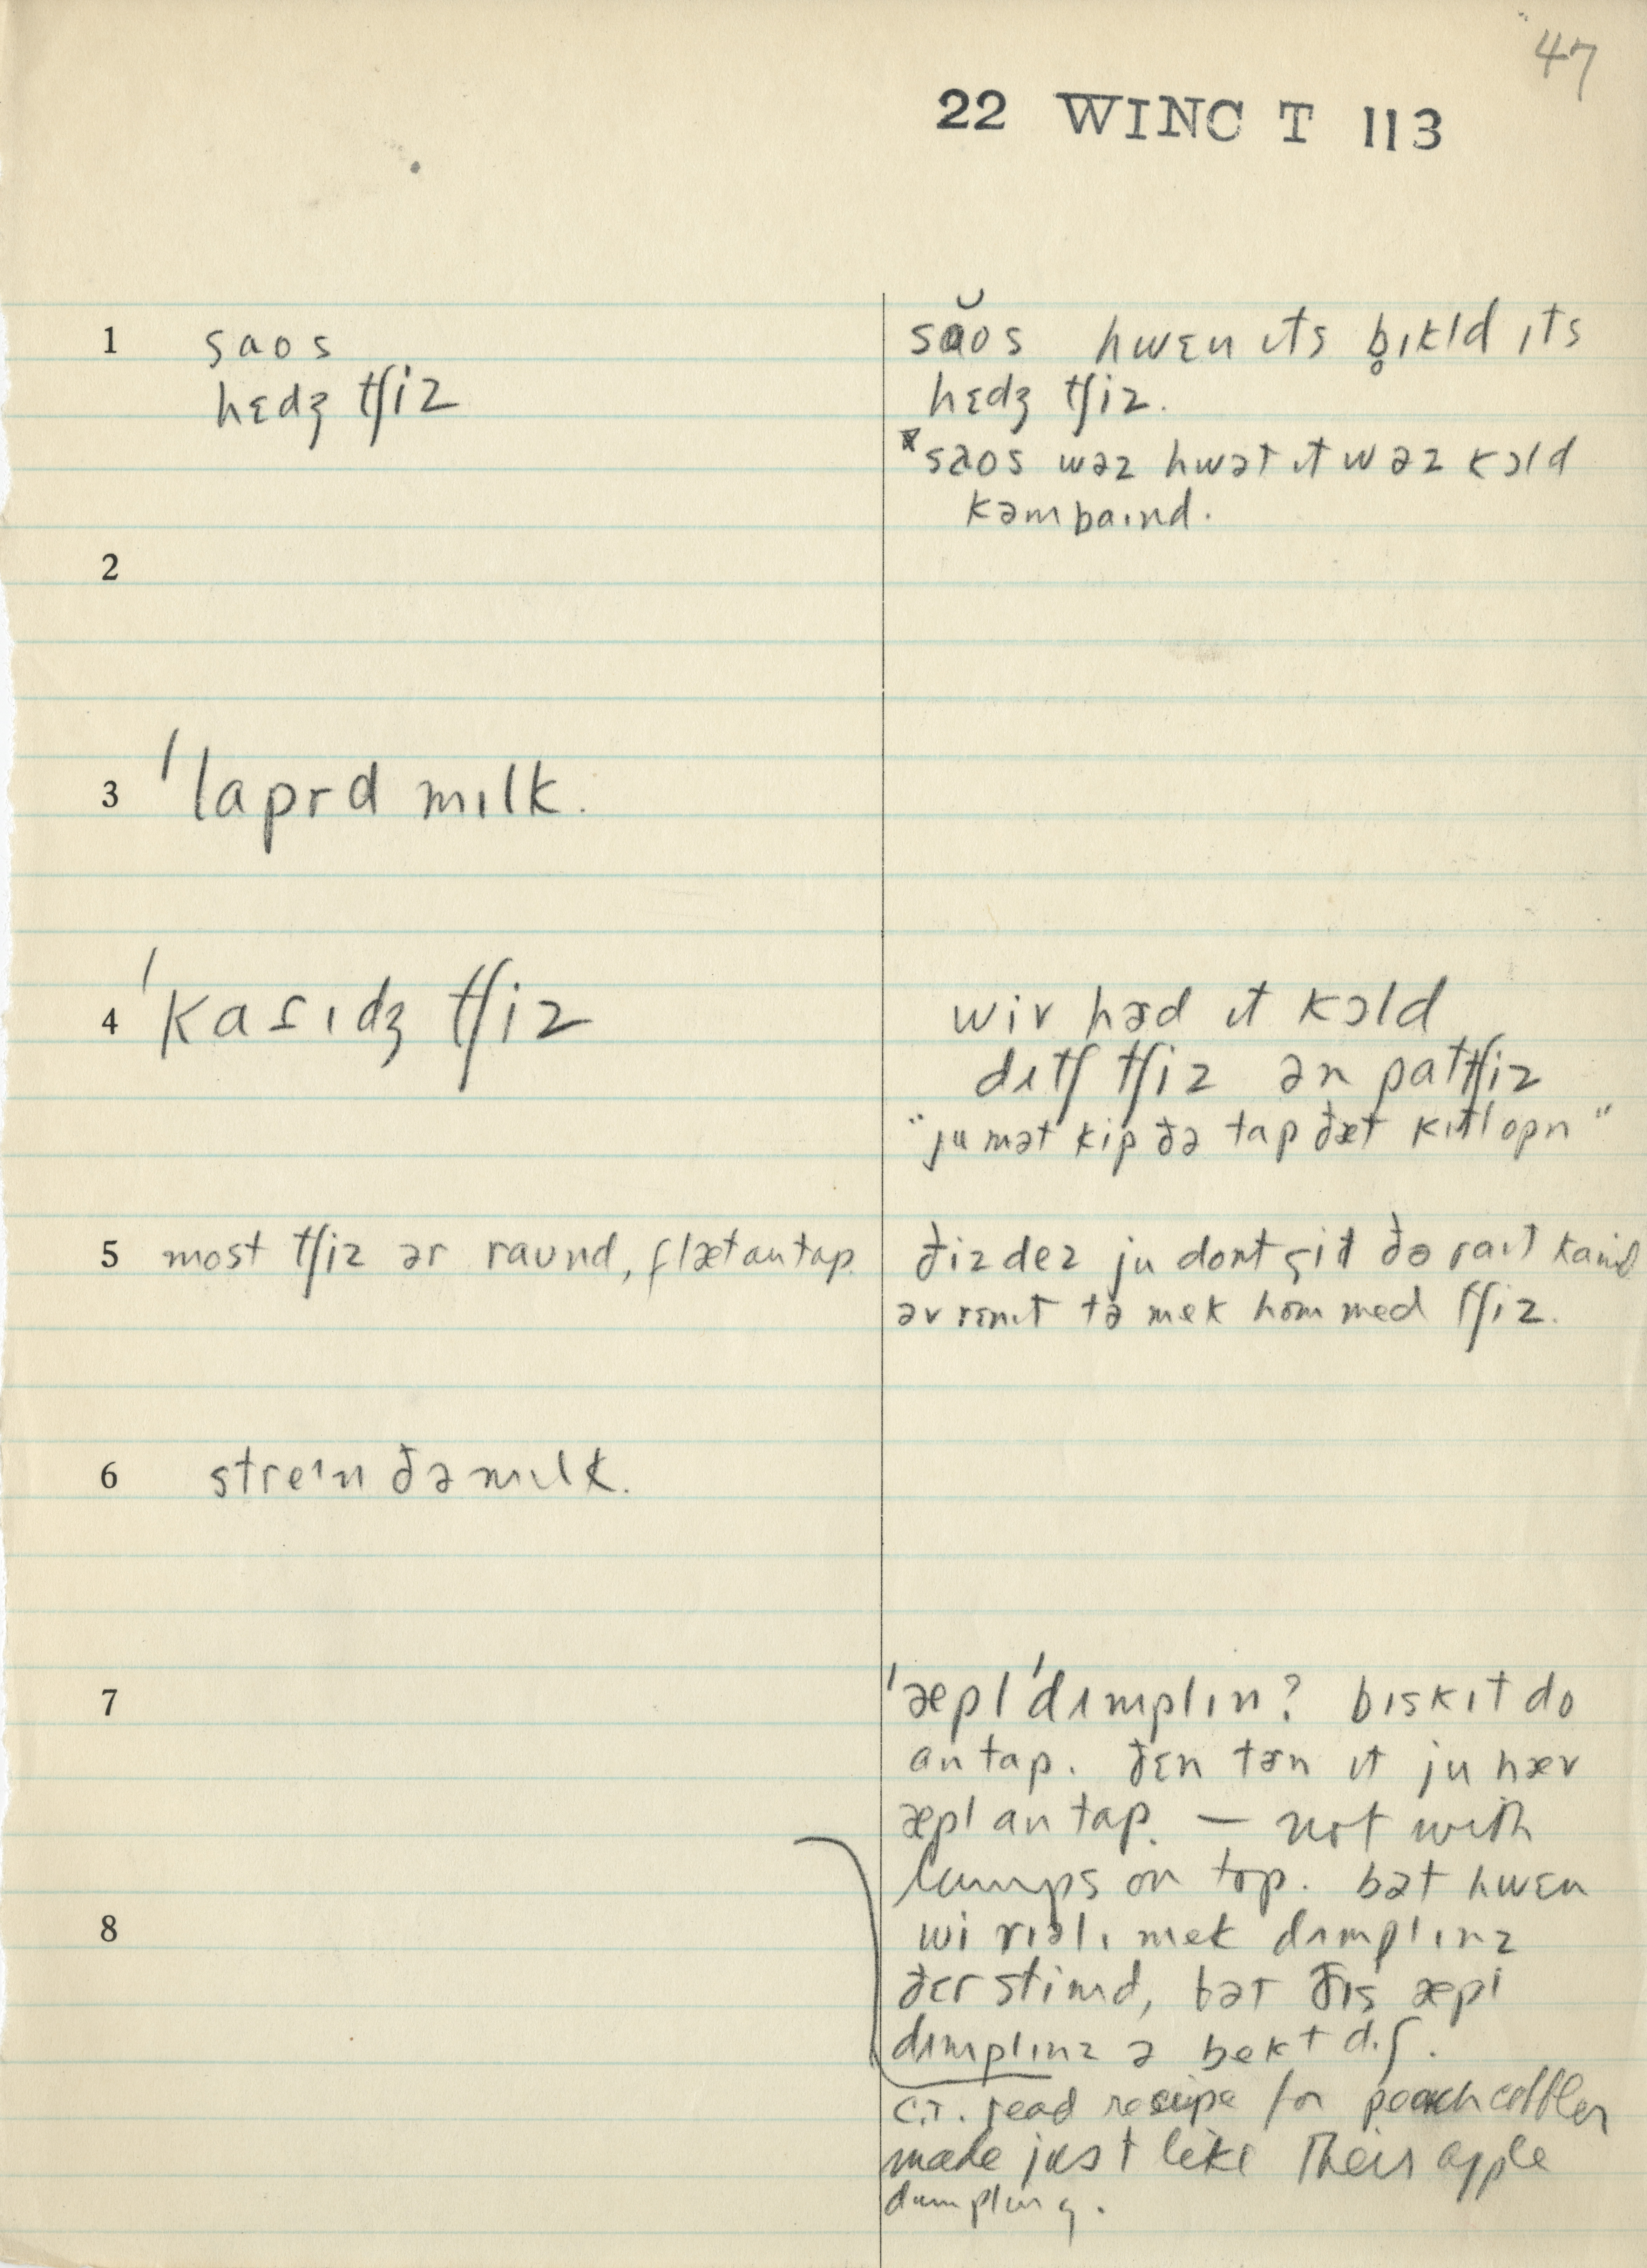 47
22 WINC T 113
1 saos
hɛdʒ tʃiz
săos hwɛn ɪts b̥ɪkld ɪts
hɛdʒ tʃiz.
saos wəz hwət ɪt wəz kɔld
kəmbaɪnd.
2
3 ˈlaprd mɪlk.
4 ˈkaɾɪdʒ tʃiz
wiv həd ɪt kɔld
dʌtʃ tʃiz ən pattʃiz
"ju mət kip ðə tap ðæt kɪtl opn"
5 most tʃiz ər raund, flæt an tap.
ðiz dez ju dont git ðə raɪt kaɪnd
əv rɛnɪt tə mek hom med tʃiz.
6 streɪn ðə mɪlk.
7
ˈæplˈdʌmplɪn? bɪskɪt do
an tap. ðɛn tɜn ɪt ju hæv
æpl an tap. — not with
lumps on top. bət hwɛn
8
wi riəlɪ mek dʌmplɪnz
ðɛr stimd, bət ðɪs æpl
dʌmplɪnz ə bekt dɪʃ.
C.T. read recipe for peach cobbler
made just like their apple
dumpling.